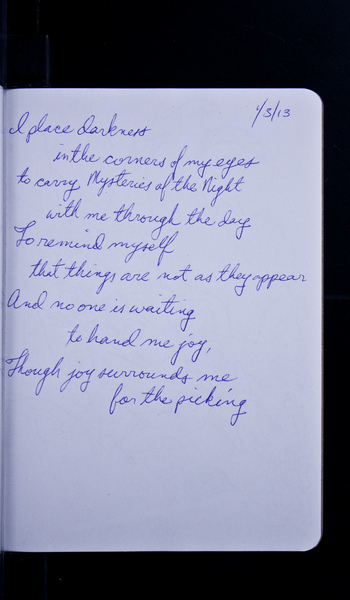 1/3/13
I place darkness
in the corners of my eyes
to carry Mysteries of the Night
with me through the day
To remind myself
that things are not as they appear
And no one is waiting
to hand me joy,
Though joy surrounds me
for the picking